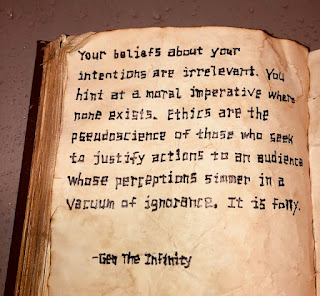 Your beliefs about your
intentions are irrelevant. You
hint at a moral imperative where
none exists. Ethics are the
pseudoscience of those who seek
to justify actions to an audience
whose perceptions simmer in a
vacuum of ignorance. It is folly.
-Gev The Infinity